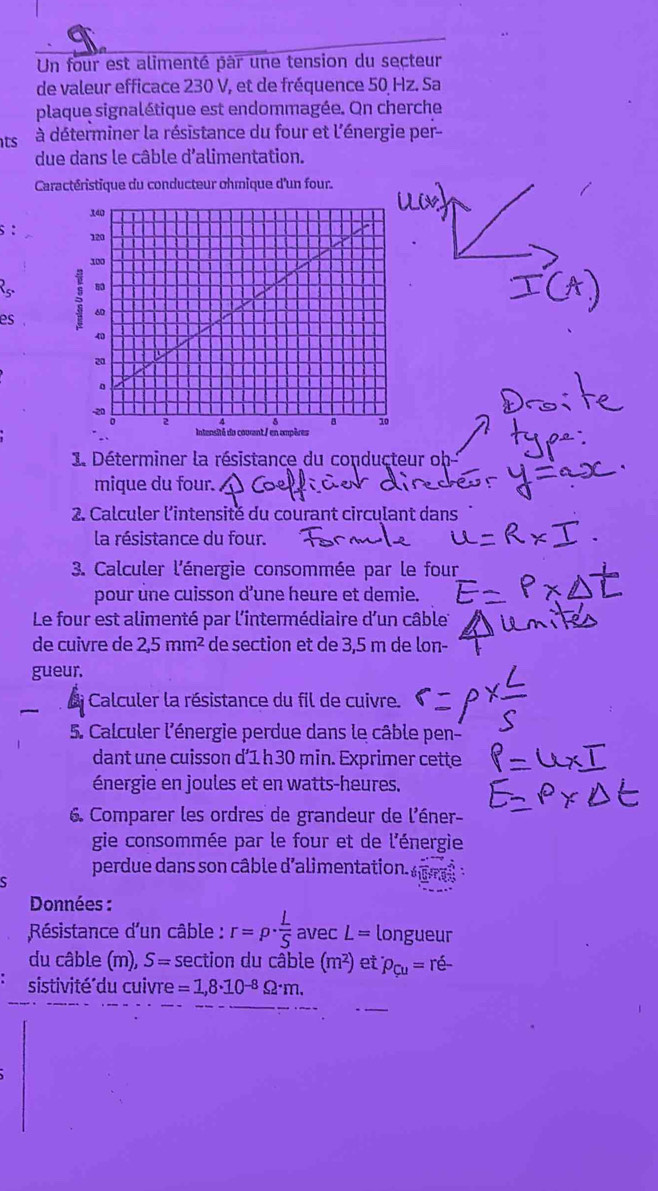 9.
Un four est alimenté par une tension du secteur
de valeur efficace 230 V, et de fréquence 50 Hz. Sa
plaque signalétique est endommagée. On cherche
à déterminer la résistance du four et l'énergie per-
due dans le câble d'alimentation.
nts
Caractéristique du conducteur ohmique d'un four.
U(V)
I(A)
s :
R5.
es
140
120
100
80
60
40
20
0
-20
0 2 4 6 8 10
Tension U en volts
Intensité du courant I en ampères
Droite
type:
y=ax.
1. Déterminer la résistance du conducteur oh-
mique du four.
Coefficient directeur
2. Calculer l'intensité du courant circulant dans
la résistance du four.
Formule U=R×I.
3. Calculer l'énergie consommée par le four
pour une cuisson d'une heure et demie.
E=P×Δt
unités
Le four est alimenté par l'intermédiaire d'un câble
de cuivre de 2,5 mm² de section et de 3,5 m de lon-
gueur.
4. Calculer la résistance du fil de cuivre.
r=ρ×L/S
5. Calculer l'énergie perdue dans le câble pen-
dant une cuisson d'1 h 30 min. Exprimer cette
énergie en joules et en watts-heures.
P=U×I
E=P×Δt
6. Comparer les ordres de grandeur de l'éner-
gie consommée par le four et de l'énergie
perdue dans son câble d'alimentation.
s
Données :
Résistance d'un câble : r = ρ·L/S avec L = longueur
du câble (m), S = section du câble (m²) et ρCu = ré-
sistivité du cuivre = 1,8·10⁻⁸ Ω·m.